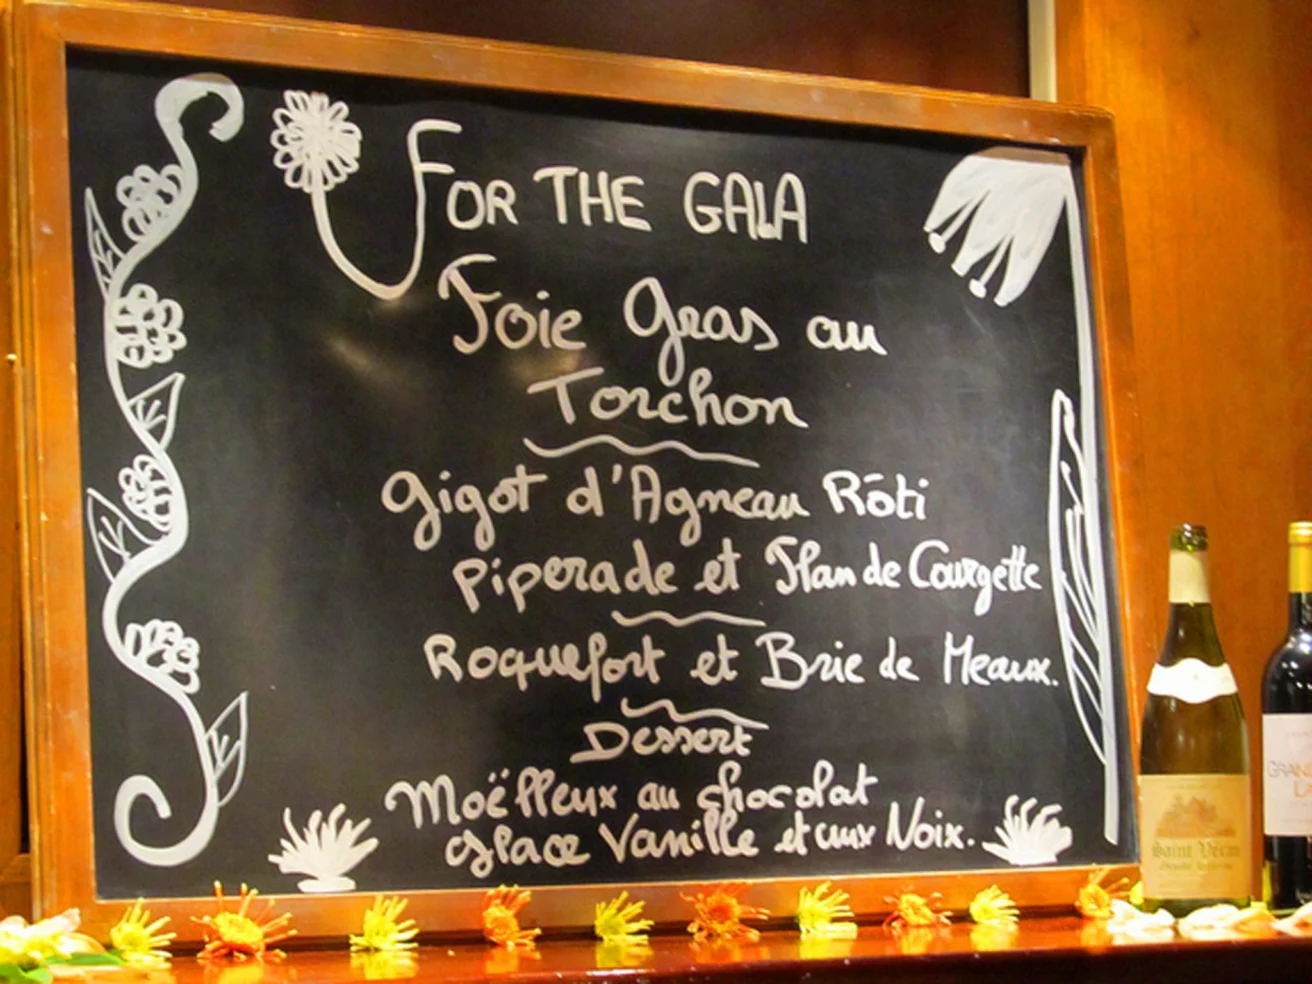 FOR THE GALA
Foie Gras au
Torchon
Gigot d'Agneau Rôti
Piperade et Flan de Courgette
Roquefort et Brie de Meaux.
Dessert
Moëlleux au chocolat
glace Vanille et aux Noix.
Saint Véran